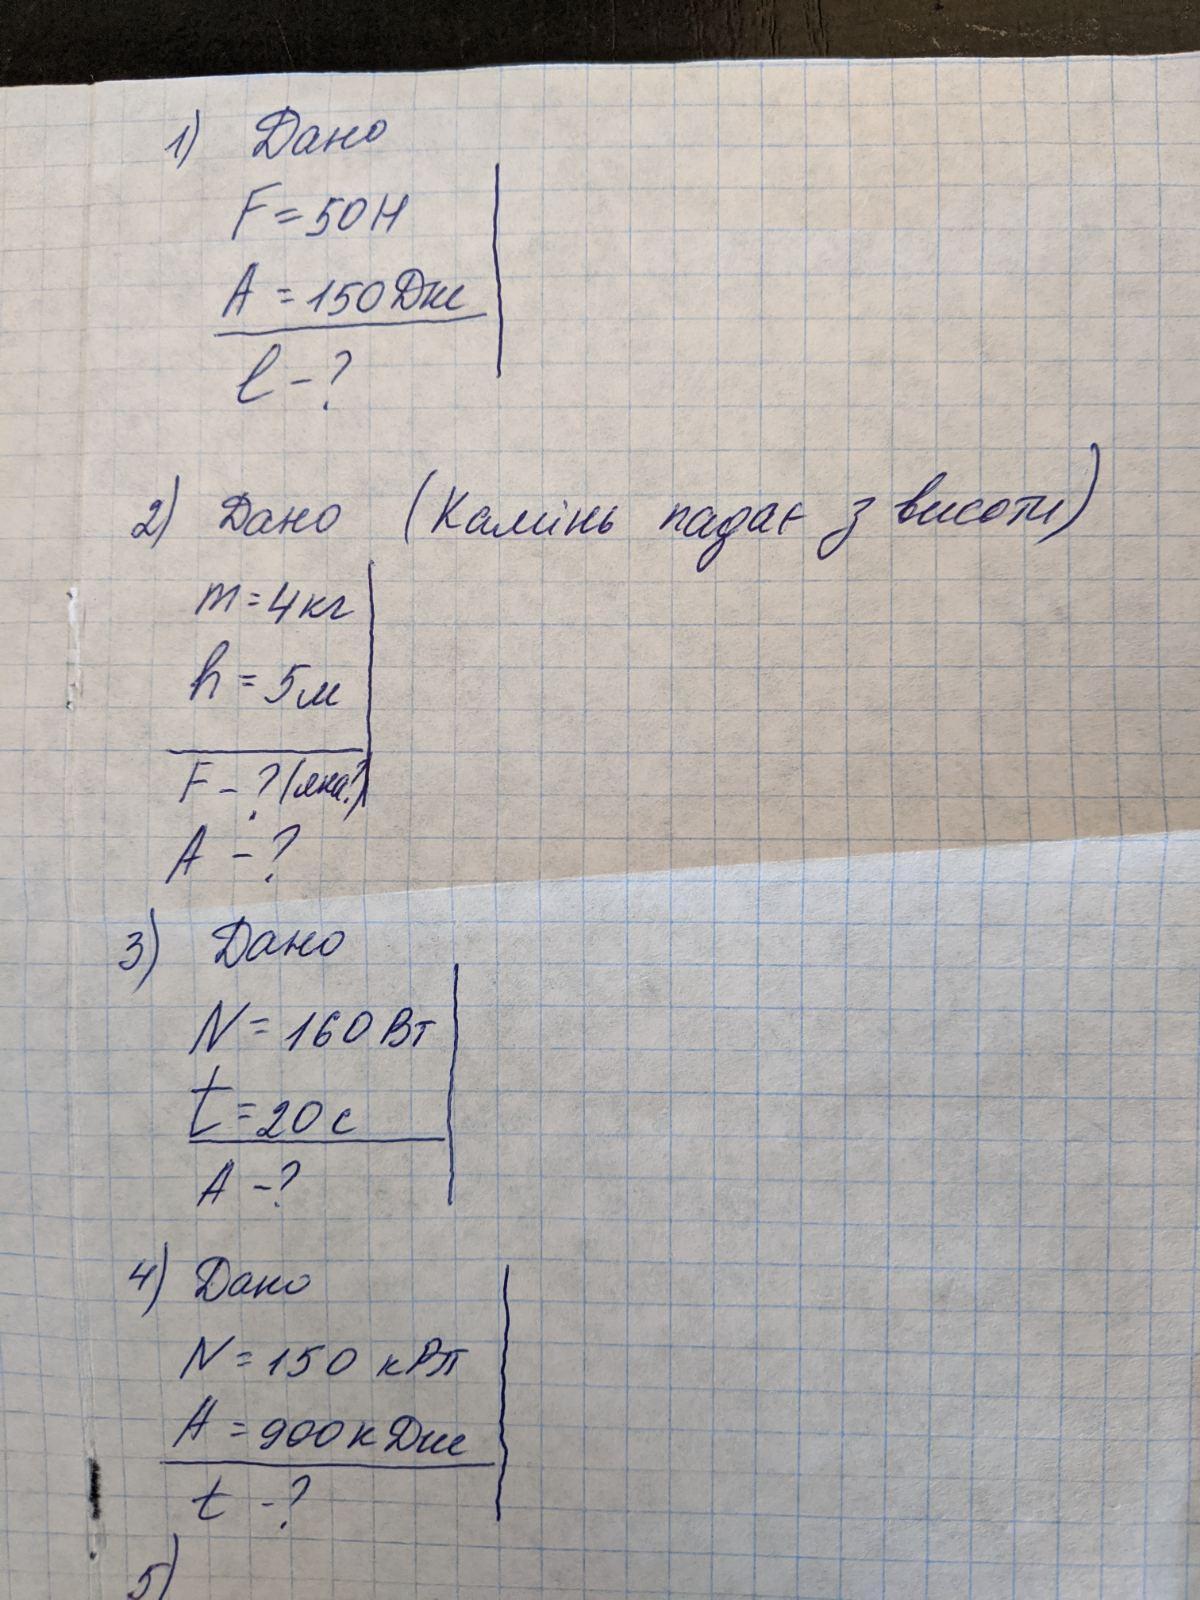 1) Дано
F = 50Н
A = 150Дж
l - ?
2) Дано (Камінь падає з висоти)
m = 4кг
h = 5м
F - ? (яка?)
A - ?
3) Дано
N = 160Вт
t = 20с
A - ?
4) Дано
N = 150 кВт
A = 900кДж
t - ?
5)